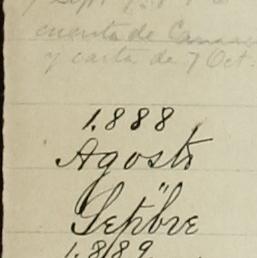 cuenta de
y carta de 7 Oct.
1.888
Agosto
"
Setbre
1.889